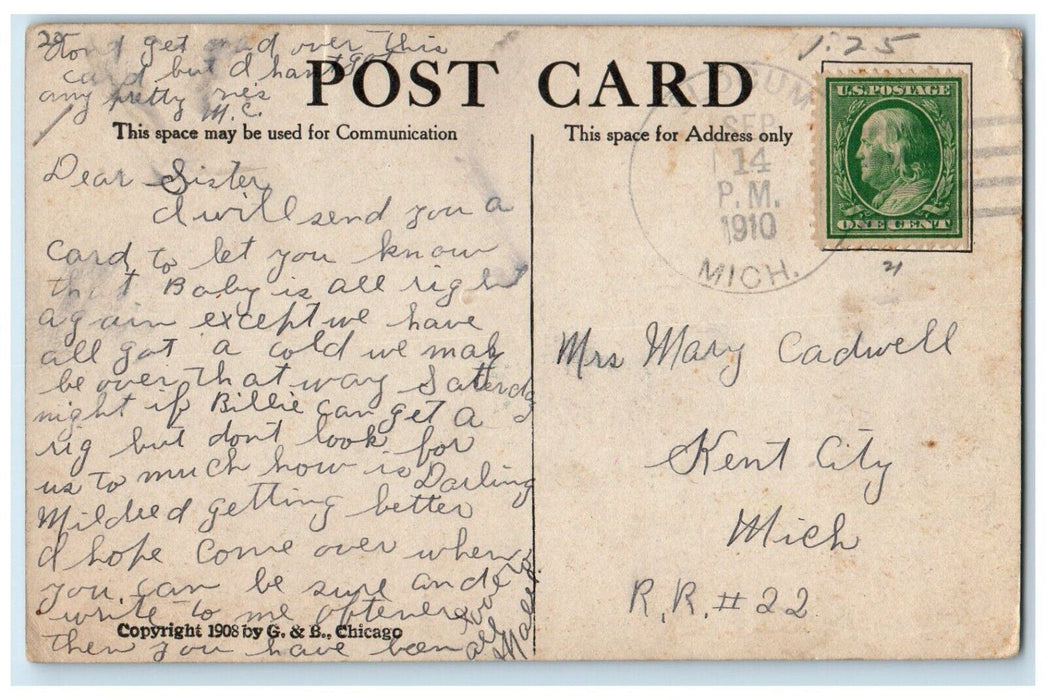 dont get mad over this
card but I hant got
any pretty
M.C.
POST CARD
This space may be used for Communication
This space for Address only
1.25
SEP
14
P.M.
1910
MICH.
U.S. POSTAGE
ONE CENT
Dear Sister
I will send you a
card to let you know
that Baby is all right
again except we have
all got a cold we may
be over that way Saterday
night if Billie can get a
rig but dont look for
us to much how is Darling
Mildred getting better
I hope come over when
you can be sure and
write to me oftener
then you have been
Copyright 1908 by G. & B., Chicago
Mrs Mary Cadwell
Kent City
Mich
R.R. # 22